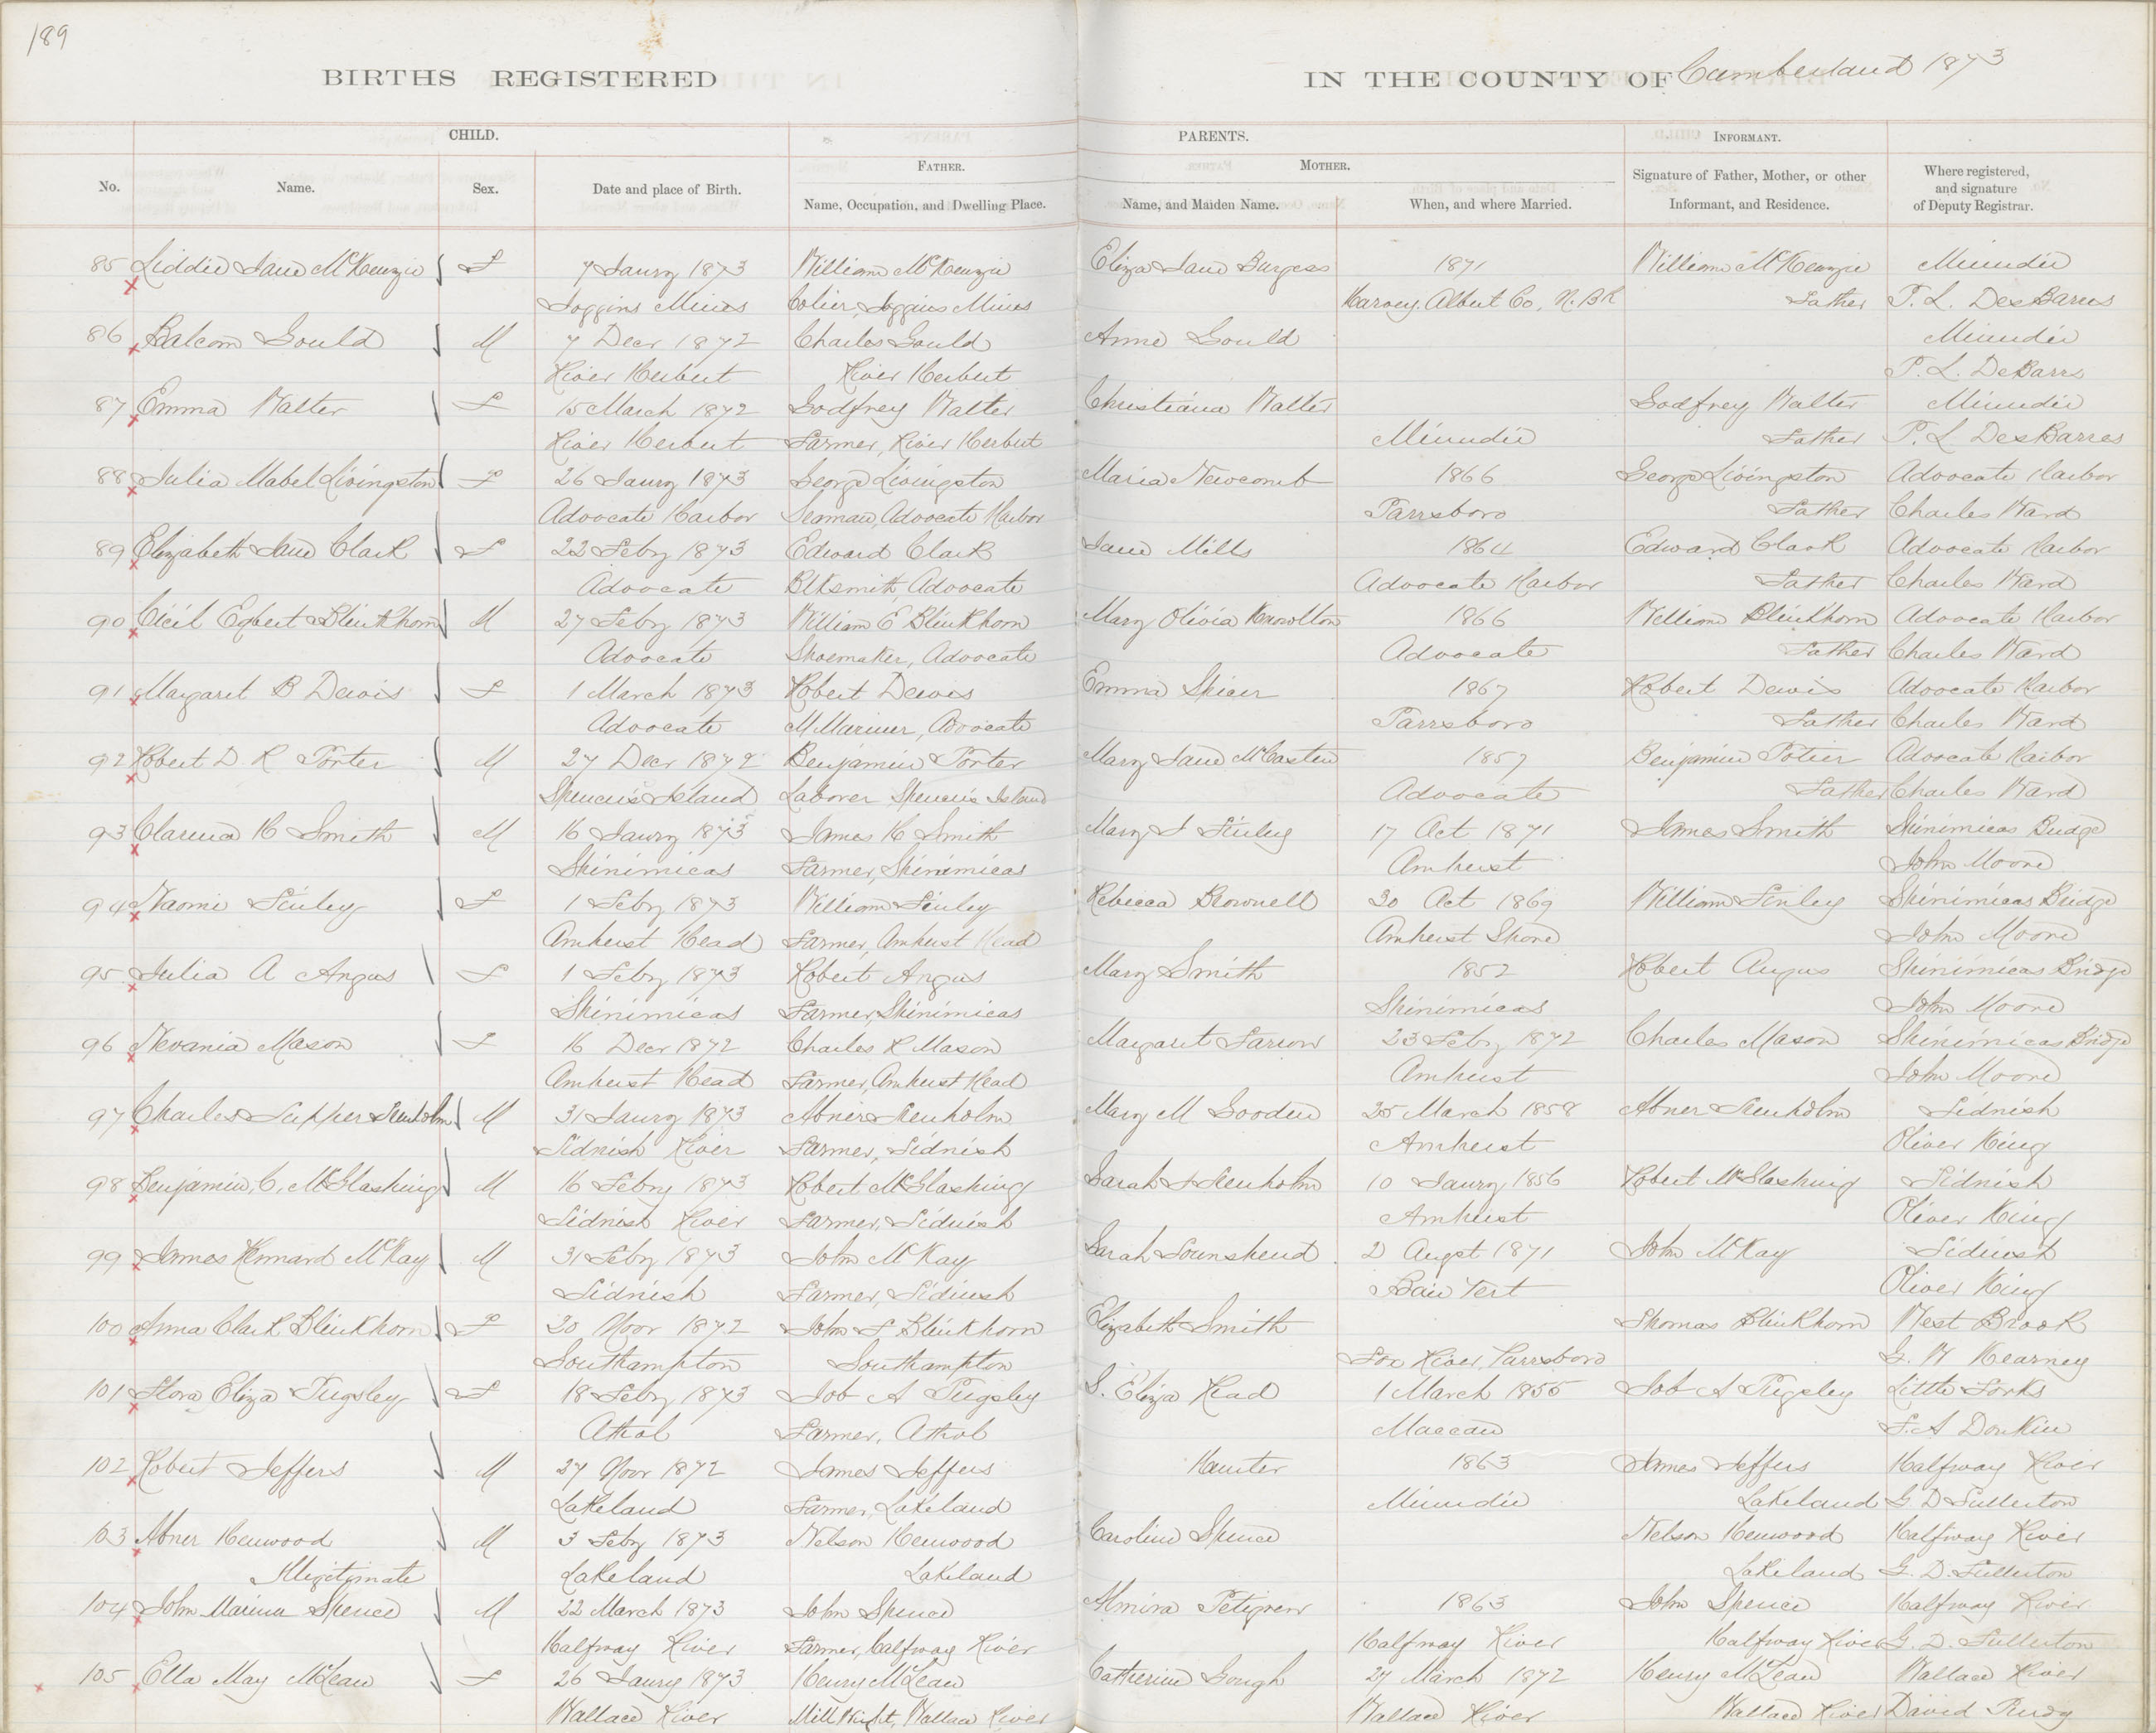 189
BIRTHS REGISTERED IN THE COUNTY OF Cumberland 1873
CHILD. PARENTS. INFORMANT.
FATHER. MOTHER.
No. Name. Sex. Date and place of Birth. Name, Occupation, and Dwelling Place. Name, and Maiden Name. When, and where Married. Signature of Father, Mother, or other Informant, and Residence. Where registered, and signature of Deputy Registrar.
85 Liddie Jane McKenzie F 7 Janry 1873 William McKenzie Eliza Jane Burgess 1871 William McKenzie Minudie
Joggins Mines Colier, Joggins Mines Harvey, Albert Co, N. BR Father P. L. DesBarres
86 Balcom Gould M 7 Decr 1872 Charles Gould Anne Gould Minudie
River Herbert River Herbert P. L. DeBarrs
87 Emma Walter F 15 March 1872 Godfrey Walter Christiana Walter Godfrey Walter Minudie
River Herbert Farmer, River Herbert Minudie Father P. L DesBarres
88 Julia Mabel Livingston F 26 Janry 1873 George Livingston Maria Newcomb 1866 George Livingston Advocate Harbor
Advocate Harbor Seaman, Advocate Harbor Parrsboro Father Charles Ward
89 Elizabeth Jane Clark F 22 Feby 1873 Edward Clark Jane Mills 1864 Edward Clark Advocate Harbor
Advocate Blksmith, Advocate Advocate Harbor Father Charles Ward
90 Cicil Egbert Blinkhorn M 27 Feby 1873 William E Blinkhorn Mary Olivia Knowlton 1866 William Blinkhorn Advocate Harbor
Advocate Shoemaker, Advocate Advocate Father Charles Ward
91 Margaret B Dewis F 1 March 1873 Robert Dewis Emma Spicer 1867 Robert Dewis Advocate Harbor
Advocate M Mariner, Advocate Parrsboro Father Charles Ward
92 Robert D. R Porter M 27 Decr 1872 Benjamin Porter Mary Jane McCasten 1857 Benjamin Potier Advocate Harbor
Spencers Island Laborer Spencers Island Advocate Father Charles Ward
93 Clarena H Smith M 16 Janry 1873 James H Smith Mary J Finley 17 Oct 1871 James Smith Shinimicas Bridge
Shinimicas Farmer, Shinimicas Amherst John Moore
94 Naomi Finley F 1 Feby 1873 William Finley Rebecca Brownell 30 Oct 1869 William Finley Shinimicas Bridge
Amherst Head Farmer, Amherst Head Amherst Shore John Moore
95 Julia A Angus F 1 Feby 1873 Robert Angus Mary Smith 1852 Robert Angus Shinimicas Bridge
Shinimicas Farmer, Shinimicas Shinimicas John Moore
96 Nevania Mason F 16 Decr 1872 Charles R Mason Margaret Farrow 23 Feby 1872 Charles Mason Shinimicas Bridge
Amherst Head Farmer, Amherst Head Amherst John Moore
97 Charles Tupper Trenholm M 31 Janry 1873 Abner Trenholm Mary M Gooden 25 March 1858 Abner Trenholm Tidnish
Tidnish River Farmer, Tidnish Amherst Oliver King
98 Benjamin, C, McGlashing M 16 Feby 1873 Robert McGlashing Sarah F Trenholm 10 Janry 1856 Robert McGlashing Tidnish
Tidnish River Farmer, Tidnish Amherst Oliver King
99 James Kennard McKay M 31 Feby 1873 John McKay Sarah Tounshend 2 Augst 1871 John McKay Tidnish
Tidnish Farmer, Tidnish Baie Vert Oliver King
100 Anna Clark Blinkhorn F 20 Novr 1872 John F Blinkhorn Elizabeth Smith Thomas Blinkhorn West Brook
Southampton Southampton Fox River, Parrsboro G. W Kearney
101 Flora Eliza Pugsley F 18 Feby 1873 Job A Pugsley S. Eliza Read 1 March 1855 Job A Pugsley Little Forks
Athol Farmer, Athol Maccan F. A Donkin
102 Robert Jeffers M 27 Novr 1872 James Jeffers Hunter 1863 James Jeffers Halfway River
Lakeland Farmer, Lakeland Minudie Lakeland G D Fullerton
103 Abner Henwood M 3 Feby 1873 Nelson Henwood Caroline Spence Nelson Henwood Halfway River
Illigitimate Lakeland Lakeland Lakeland G. D. Fullerton
104 John Mariner Spence M 22 March 1873 John Spence Almira Petigrew 1863 John Spence Halfway River
Halfway River Farmer, Halfway River Halfway River Halfway River G. D. Fullerton
105 Ella May McLean F 26 Janry 1873 Henry McLean Catherine Gough 27 March 1872 Henry McLean Wallace River
Wallace River Mill Wright, Wallace River Wallace River Wallace River David Purdy